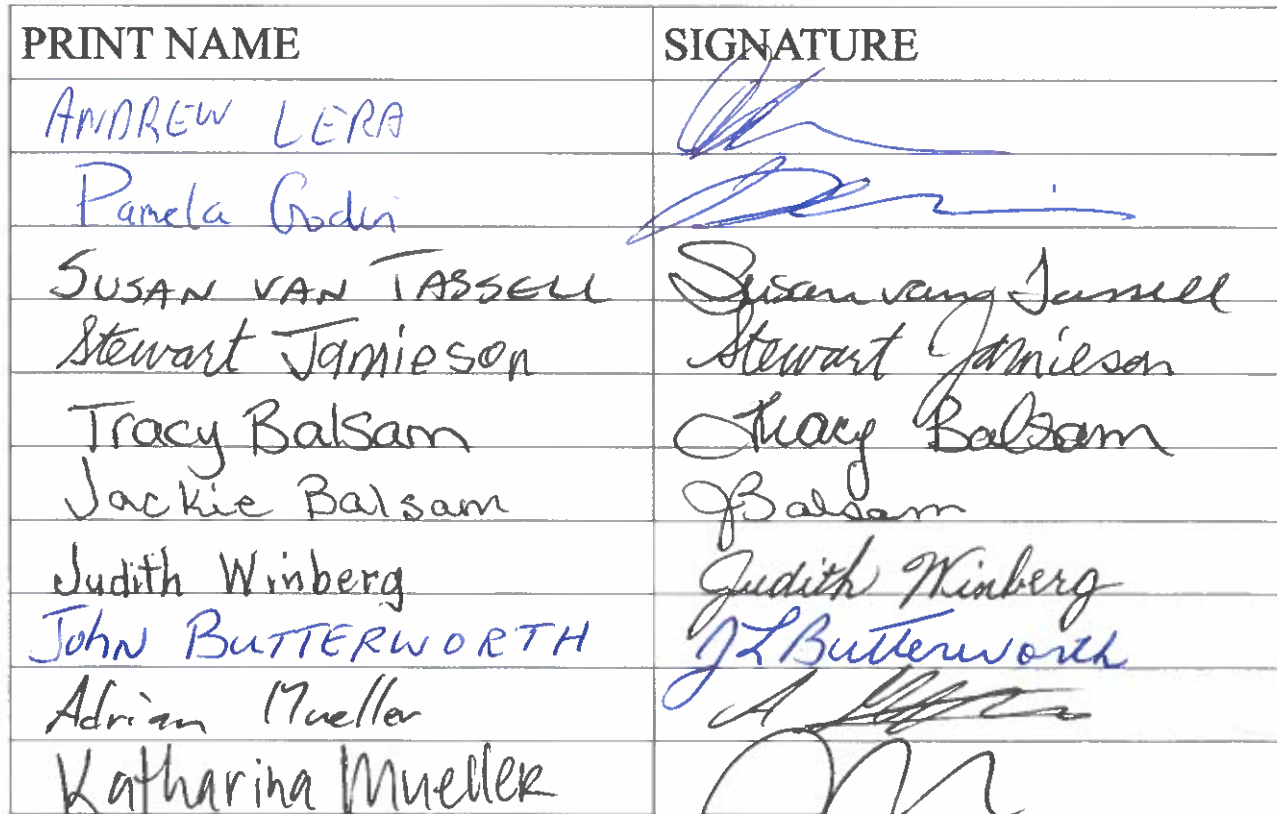 PRINT NAME SIGNATURE
ANDREW LERA
Pamela Godin
SUSAN VAN TASSELL Susan van Tassell
Stewart Jamieson Stewart Jamieson
Tracy Balsam Tracy Balsam
Jackie Balsam JBalsam
Judith Winberg Judith Winberg
JOHN BUTTERWORTH JL Butterworth
Adrian Mueller A
Katharina Mueller